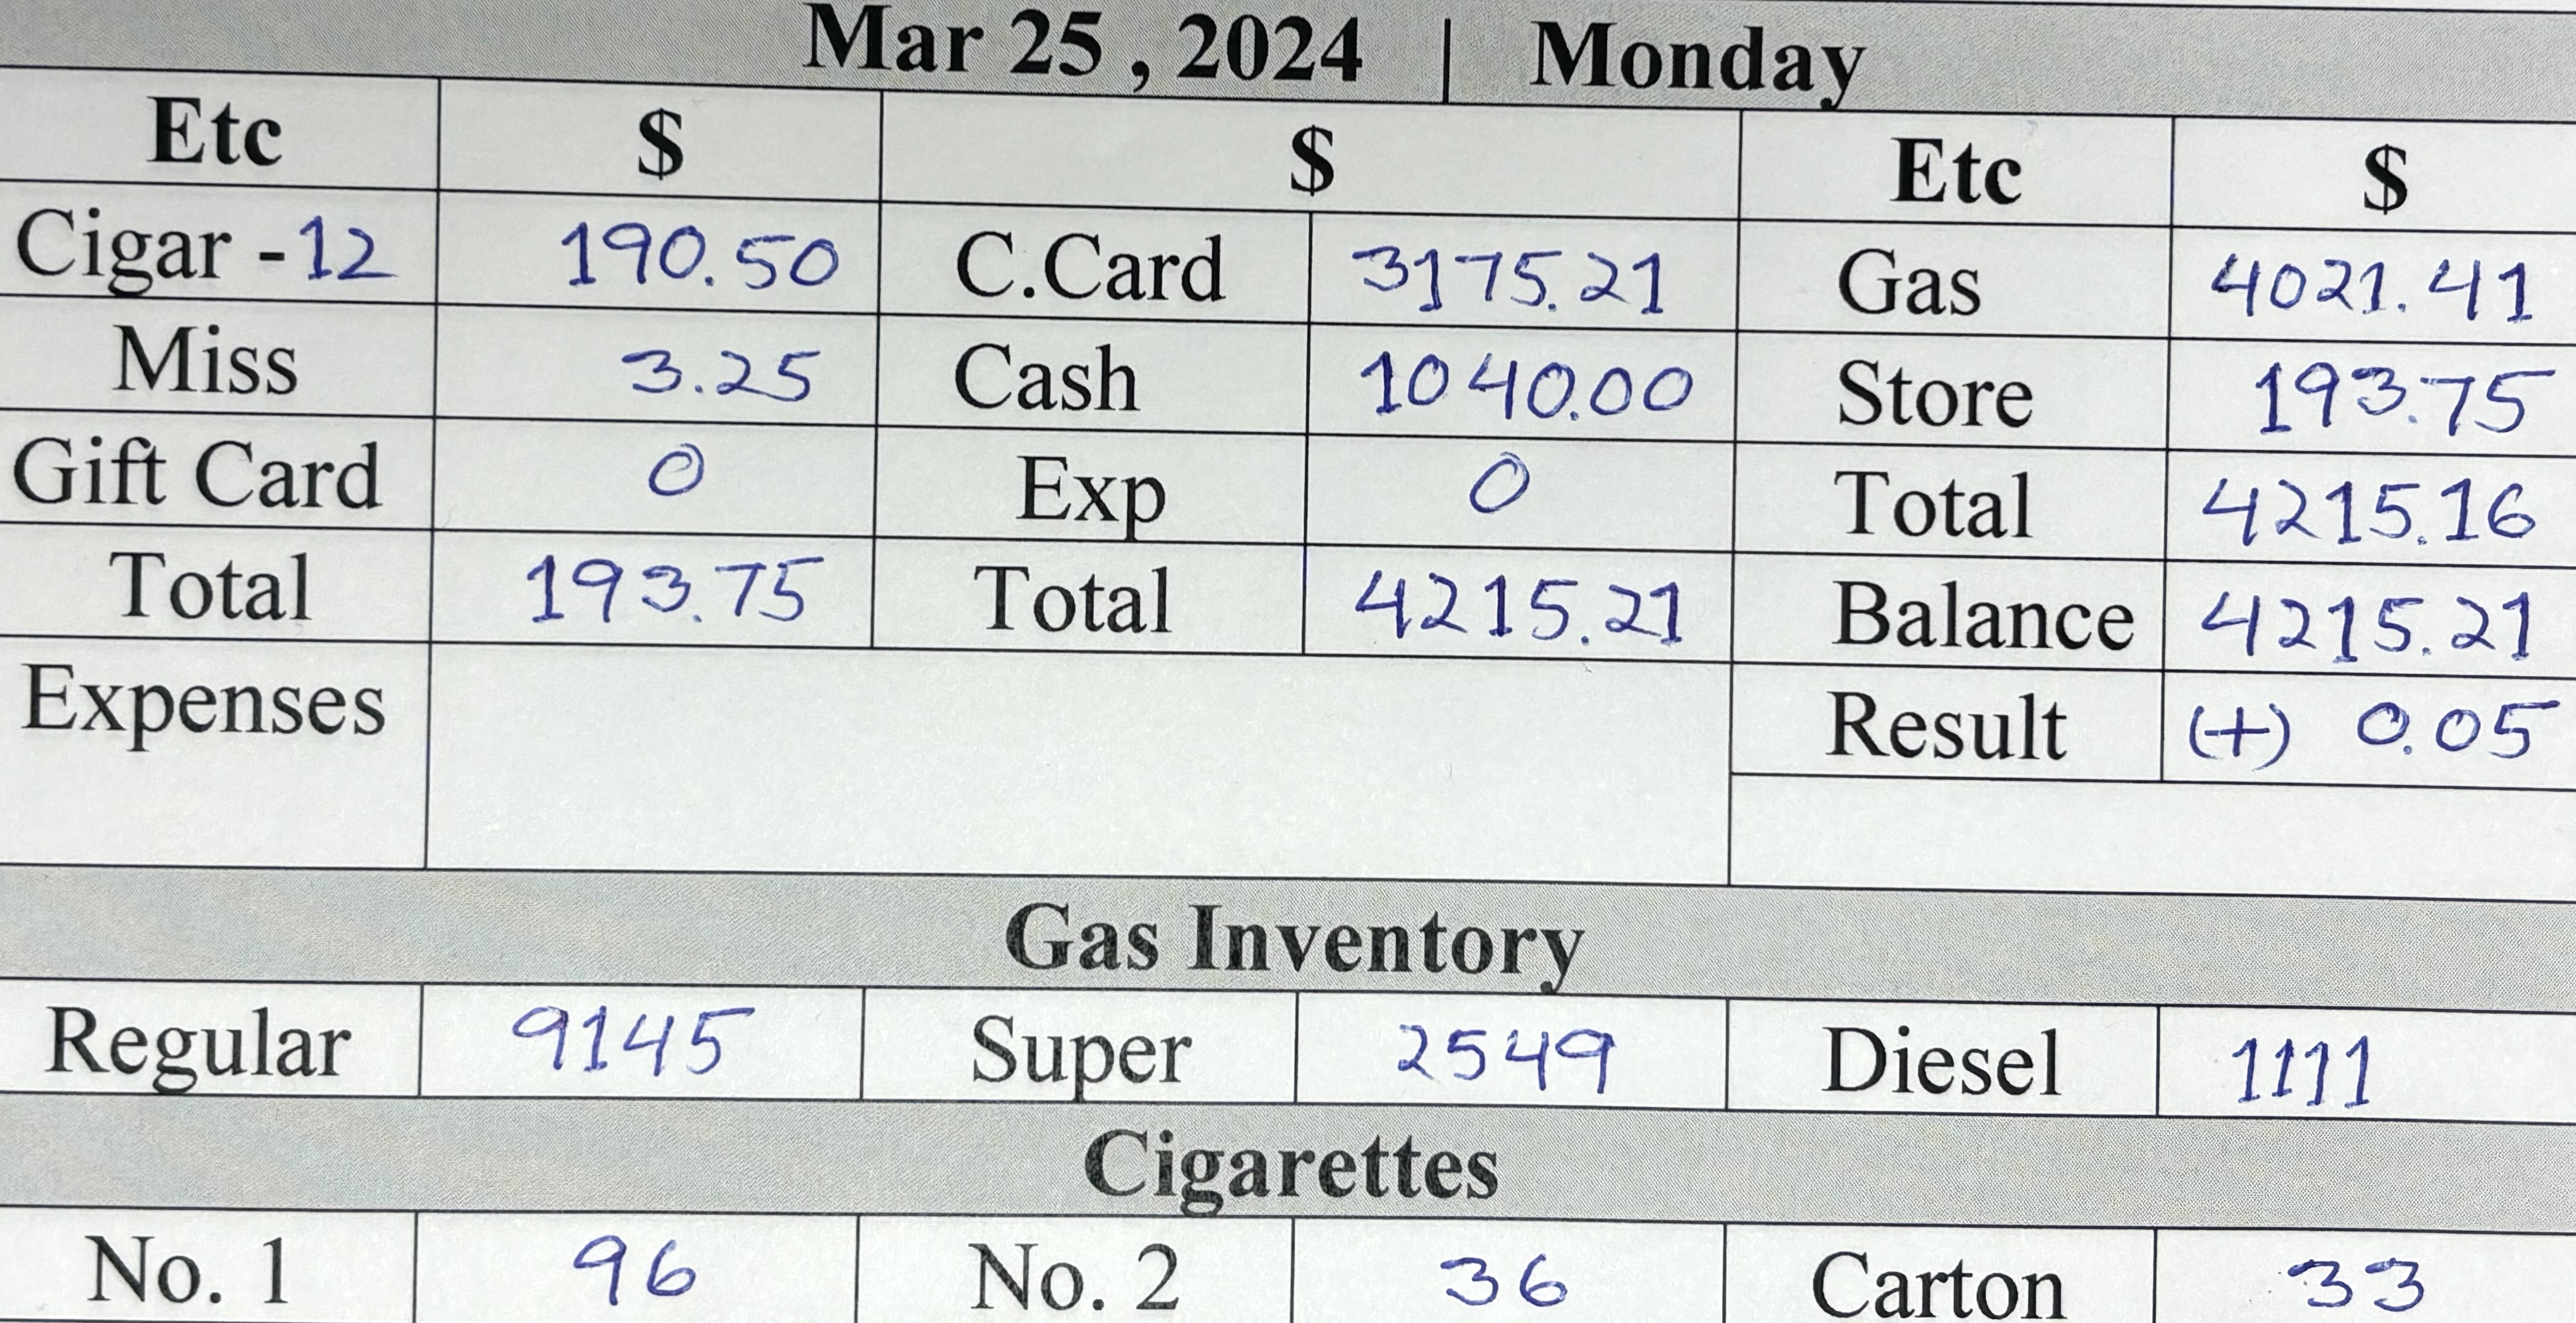 Mar 25 , 2024 | Monday
Etc $ $ Etc $
Cigar - 12 190.50 C.Card 3175.21 Gas 4021.41
Miss 3.25 Cash 1040.00 Store 193.75
Gift Card 0 Exp 0 Total 4215.16
Total 193.75 Total 4215.21 Balance 4215.21
Expenses Result (+) 0.05
Gas Inventory
Regular 9145 Super 2549 Diesel 1111
Cigarettes
No. 1 96 No. 2 36 Carton 33